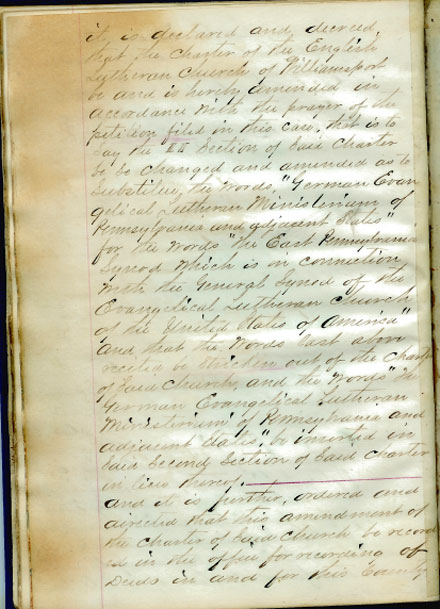 it is declared and decreed,
that the Charter of the English
Lutheran Church of Williamsport
be and is hereby amended in
accordance with the prayer of the
petition filed in this case, that is to
Say the II Section of Said Charter
be so changed and amended as to
Substitue, the words, "German Evan
gelical Lutheran Ministerium of
Pennsylvania and adjacent States"
for the words "the East Pennsylvania
Synod which is in connection
with the General Synod of the
Evangelical Lutheran Church
of the United States of America"
and that the words last above
recited be stricken out of the Charter
of Said Church, and the words "the
German Evangelical Lutheran
Ministerium of Pennsylvania and
adjacent States, be inserted in
Said Second Section of Said Charter
in lieu thereof.
and it is further, ordered and
directed that this amendment of
the Charter of Said Church be record
ed in the office for recording of
Deeds in and for this County